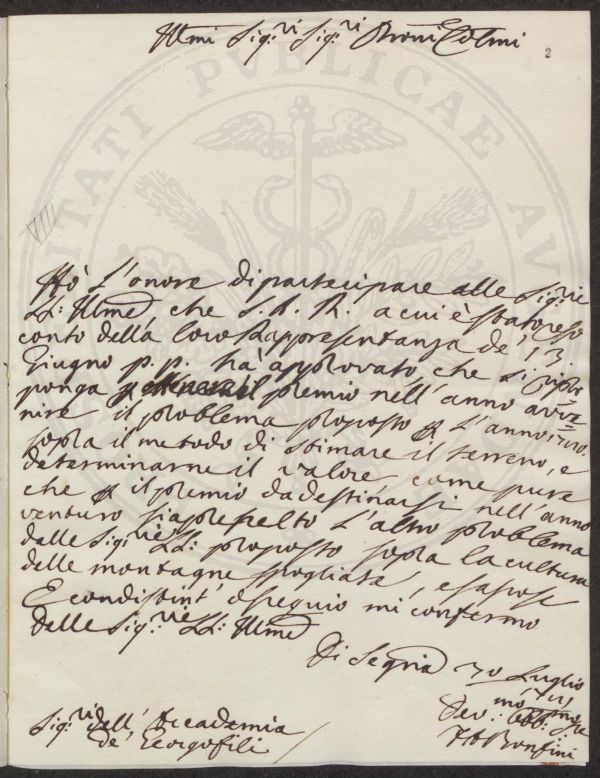 Illmi Sig.ri Sig.ri Proni Colmi
2
VIII
Hò L'onore di partecipare alle Sig.rie
LL: Illme che S. A. R. a cui è stato reso
conto della loro Rappresentanza de' 13
Giugno p.p. hà approvato, che si ripro
ponga il premio nell'anno
nire il problema proposto L'anno
sopra il metodo di stimare il terreno, e
determinarne il valore, come pure
che il premio da destinarsi nell'anno
venturo sia prescelto L'altro problema
dalle Sig.rie LL: proposto sopra la cultura
delle montagne spogliate, e sassose
E con distint' ossequio mi confermo
Delle Sig.rie LL: Illme
Di Segria 30 Luglio
Dev.mo Obb.
Sig.ri dell' Accademia
de' Georgofili
TATI PVBLICAE AV